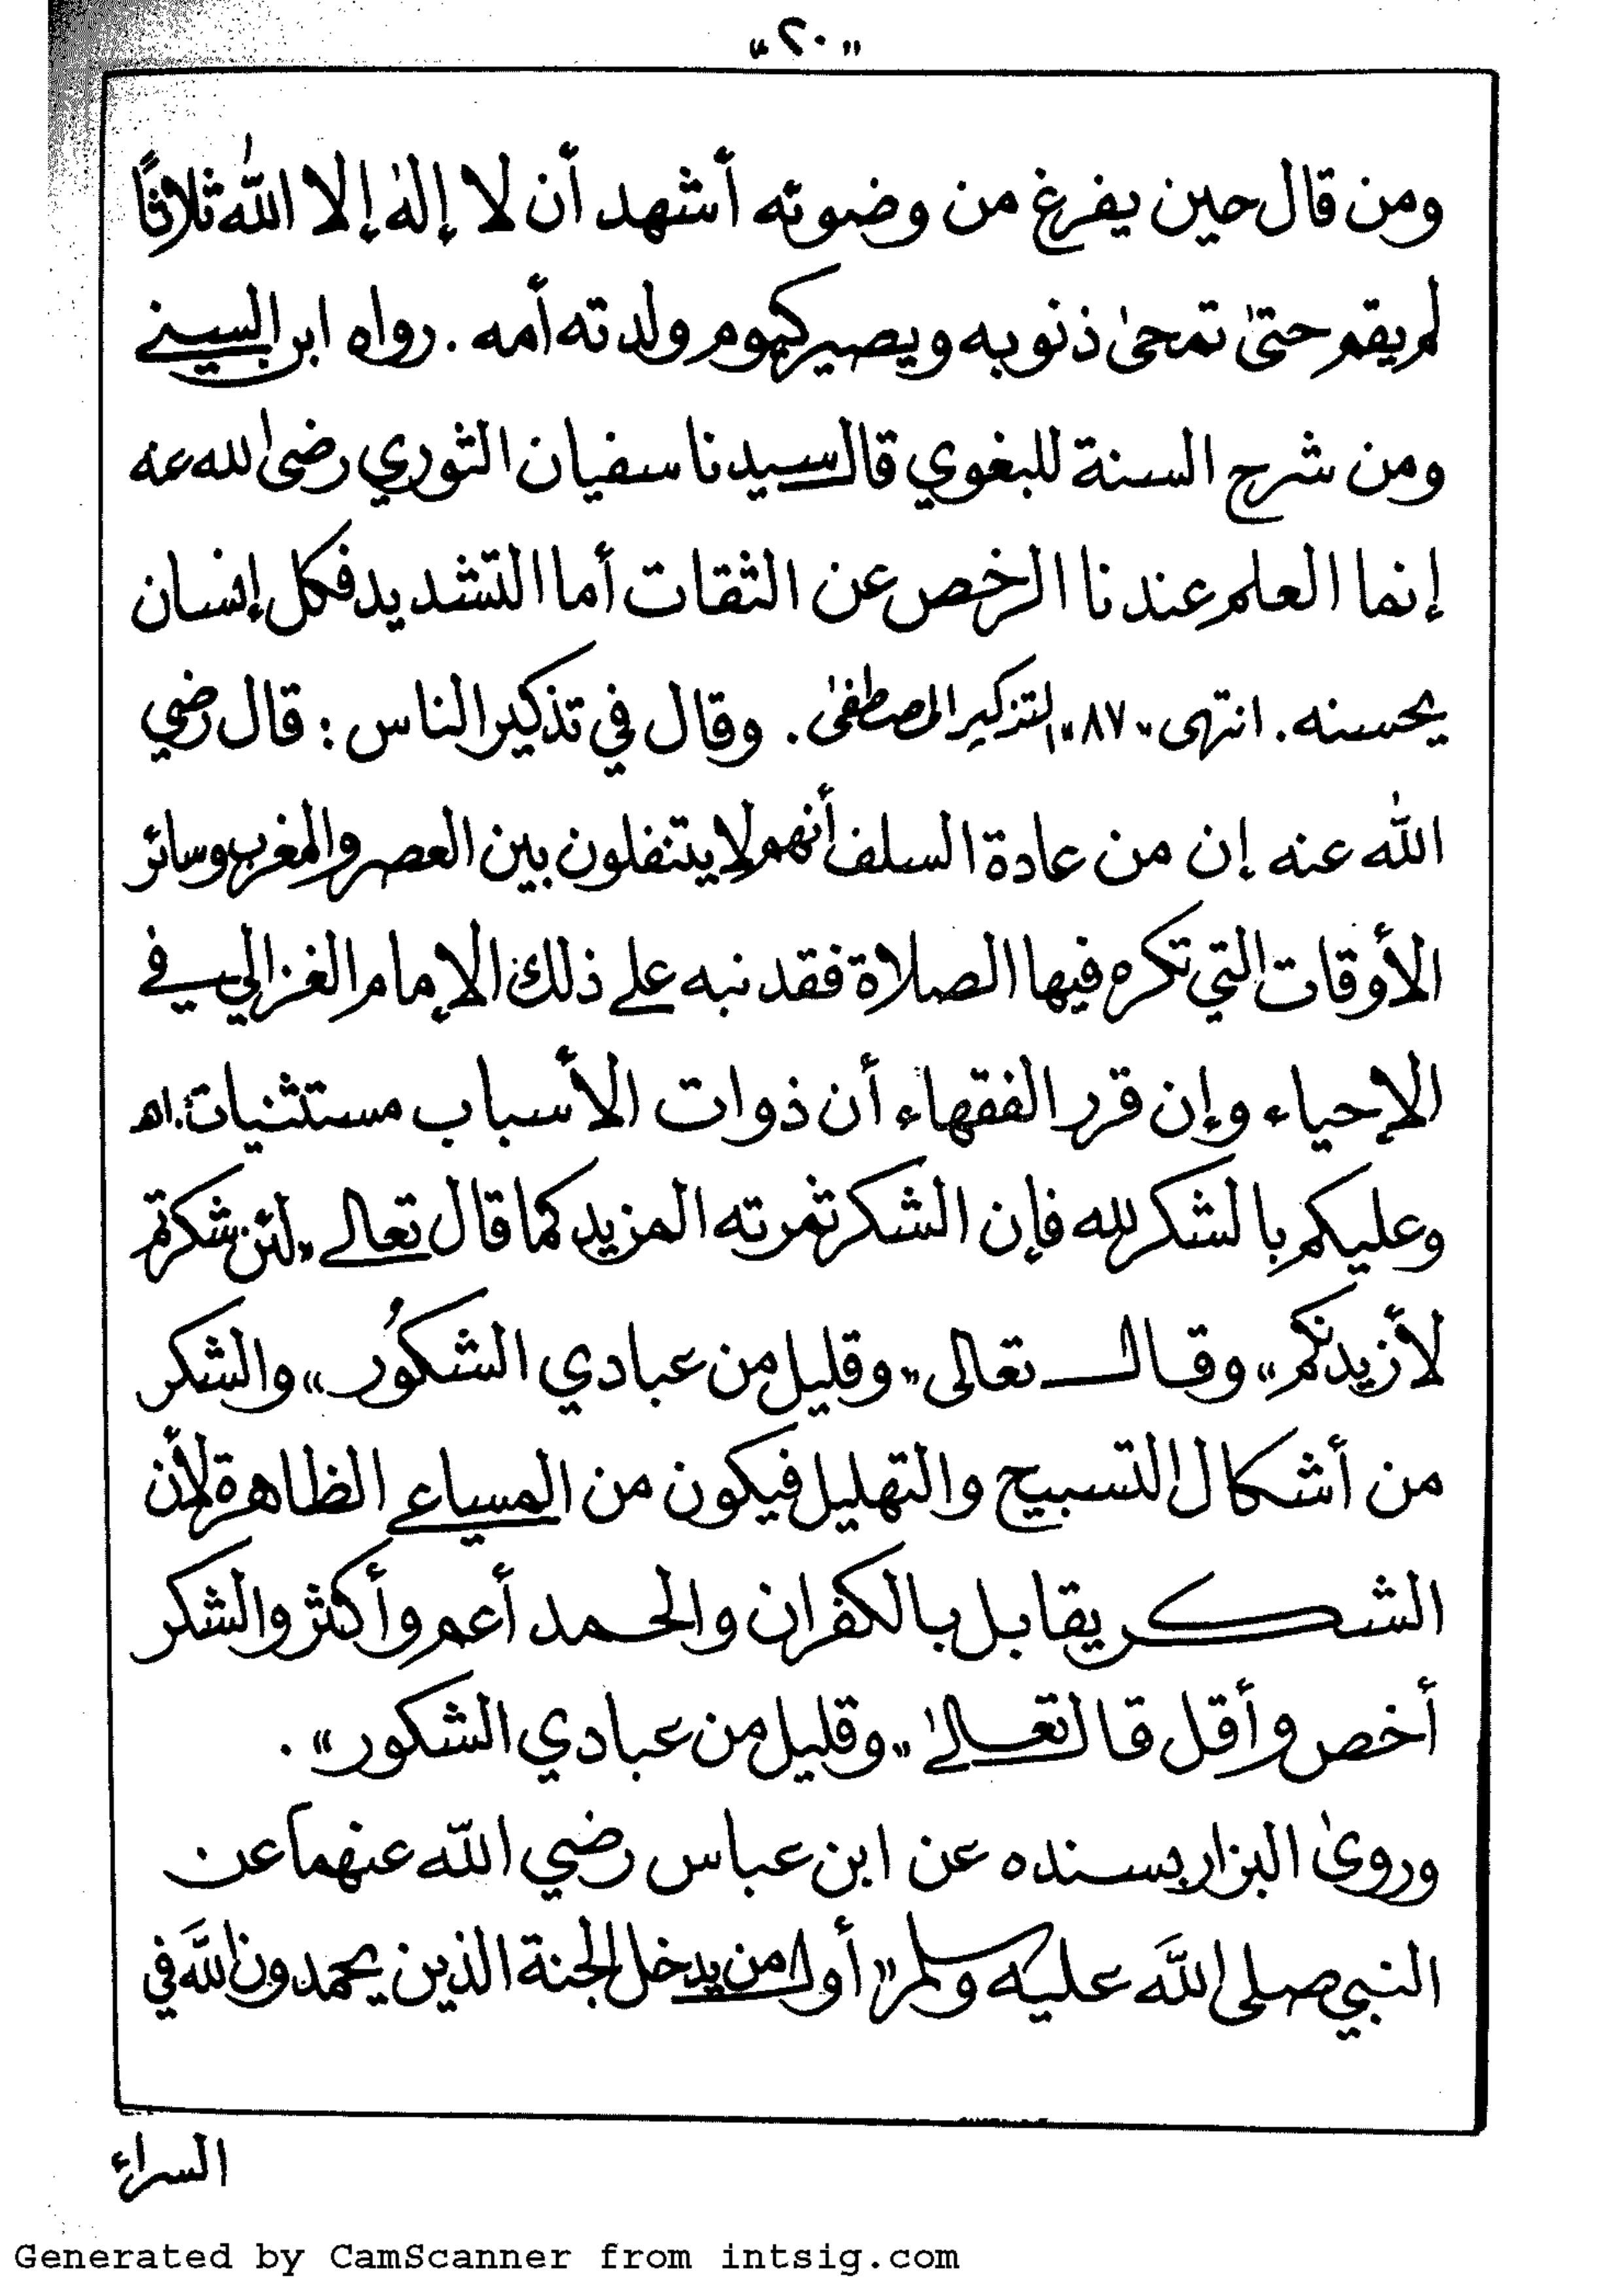 "٢٠"
ومن قال حين يفرغ من وضوئه أشهد أن لا إله إلا الله ثلاثًا
لم يقم حتىٰ تمحىٰ ذنوبه ويصير كيوم ولدته أمه . رواه ابن السني
ومن شرح السنة للبغوي قال سيدنا سفيان الثوري رضي الله عنه
إنما العلم عندنا الرخص عن الثقات أما التشديد فكل إنسان
يحسنه . انتهى "٨٧" التذكير المصطفىٰ . وقال في تذكير الناس : قال رضي
الله عنه إن من عادة السلف أنهم لا يتنفلون بين العصر والمغرب وسائر
الأوقات التي تكره فيها الصلاة فقد نبه على ذلك الإمام الغزالي في
الإحياء وإن قرر الفقهاء أن ذوات الأسباب مستثنيات . اهـ
وعليكم بالشكر لله فإن الشكر ثمرته المزيد كما قال تعالى "لئن شكرتم
لأزيدنكم" وقال تعالى "وقليل من عبادي الشكُور" والشكر
من أشكال التسبيح والتهليل فيكون من المساعي الظاهرة لأن
الشكر يقابل بالكفران والحمد أعم وأكثر والشكر
أخص وأقل قال تعالىٰ "وقليل من عبادي الشكور" .
وروىٰ البزار بسنده عن ابن عباس رضي الله عنهما عن
النبي صلى الله عليه وسلم "أول من يدخل الجنة الذين يحمدون الله في
السراء
Generated by CamScanner from intsig.com